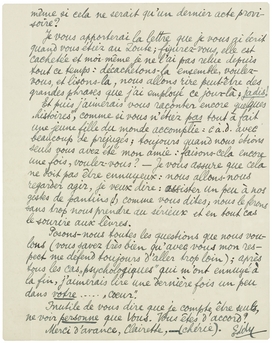 même si cela ne serait qu'un dernier acte provi-
soire?
Je vous apporterai la lettre que je vous ai écrit
quand vous étiez au Zoute: figurez-vous, elle est
cachetée et moi même je ne l'ai pas relue depuis
tout ce temps: décachetons-la ensemble, voulez-
vous, et lisons-la, nous allons rire peut-être des
grandes phrases que j'ai employé ce jour-là, jadis!
Et puis j'aimerais vous raconter encore quelques
histoires, comme si vous n'étiez pas tout à fait
une jeune fille du monde accomplie: c.à.d. avec
beaucoup de préjugés; toujours quand nous étions
seuls vous avez été mon amie: faisons cela encore
une fois, voulez-vous? — je vous assure que cela
ne doit pas être ennuyeux: nous allons nous
regarder agir, je veux dire: assister un peu à nos
gestes de pantins (!), comme vous dites, nous le ferons
sans trop nous prendre au sérieux et en tout cas
le sourire aux lèvres.
Posons-nous toutes les questions que nous vou-
lons (vous savez très bien qu'avec vous mon res-
pect me défend toujours d'aller trop loin); après
tous les cas "psychologiques" qui m'ont ennuyé à
la fin, j'aimerais lire une dernière fois un peu
dans votre ..... cœur.
Inutile de vous dire que je compte être seuls,
ne voir personne que vous. Vous êtes d'accord?
Merci d'avance, Clairette, — (chérie).